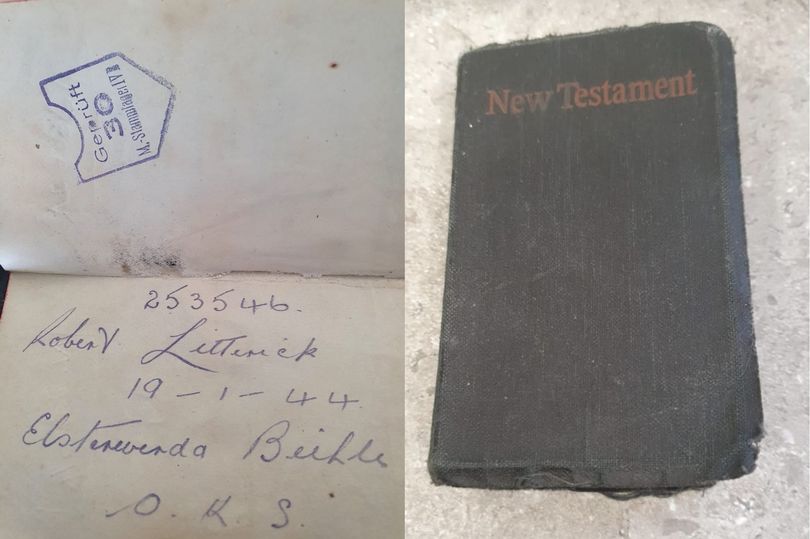 Geprüft
30
M.-Stammlager IV
253546.
Robert Litterick
19 - 1 - 44
Elsterwerda Beihla
O. K. S.
New Testament